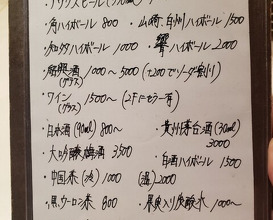 ・角ハイボール 800 ・山崎、白州ハイボール 1500
・知多ハイボール 1000 ・響ハイボール 2000
・紹興酒(グラス) 1000〜5000 (+200でソーダ割り)
・ワイン(グラス) 1500〜 (2Fにセラー有)
・白水酒(90ml) 800〜 ・貴州茅台酒(30ml) 3000〜
・大吟醸梅酒 3500 ・白酒ハイボール 1500
・中国茶(冷) 1000 (温) 2000
・黒ウーロン茶 800 ・炭酸水 1000〜